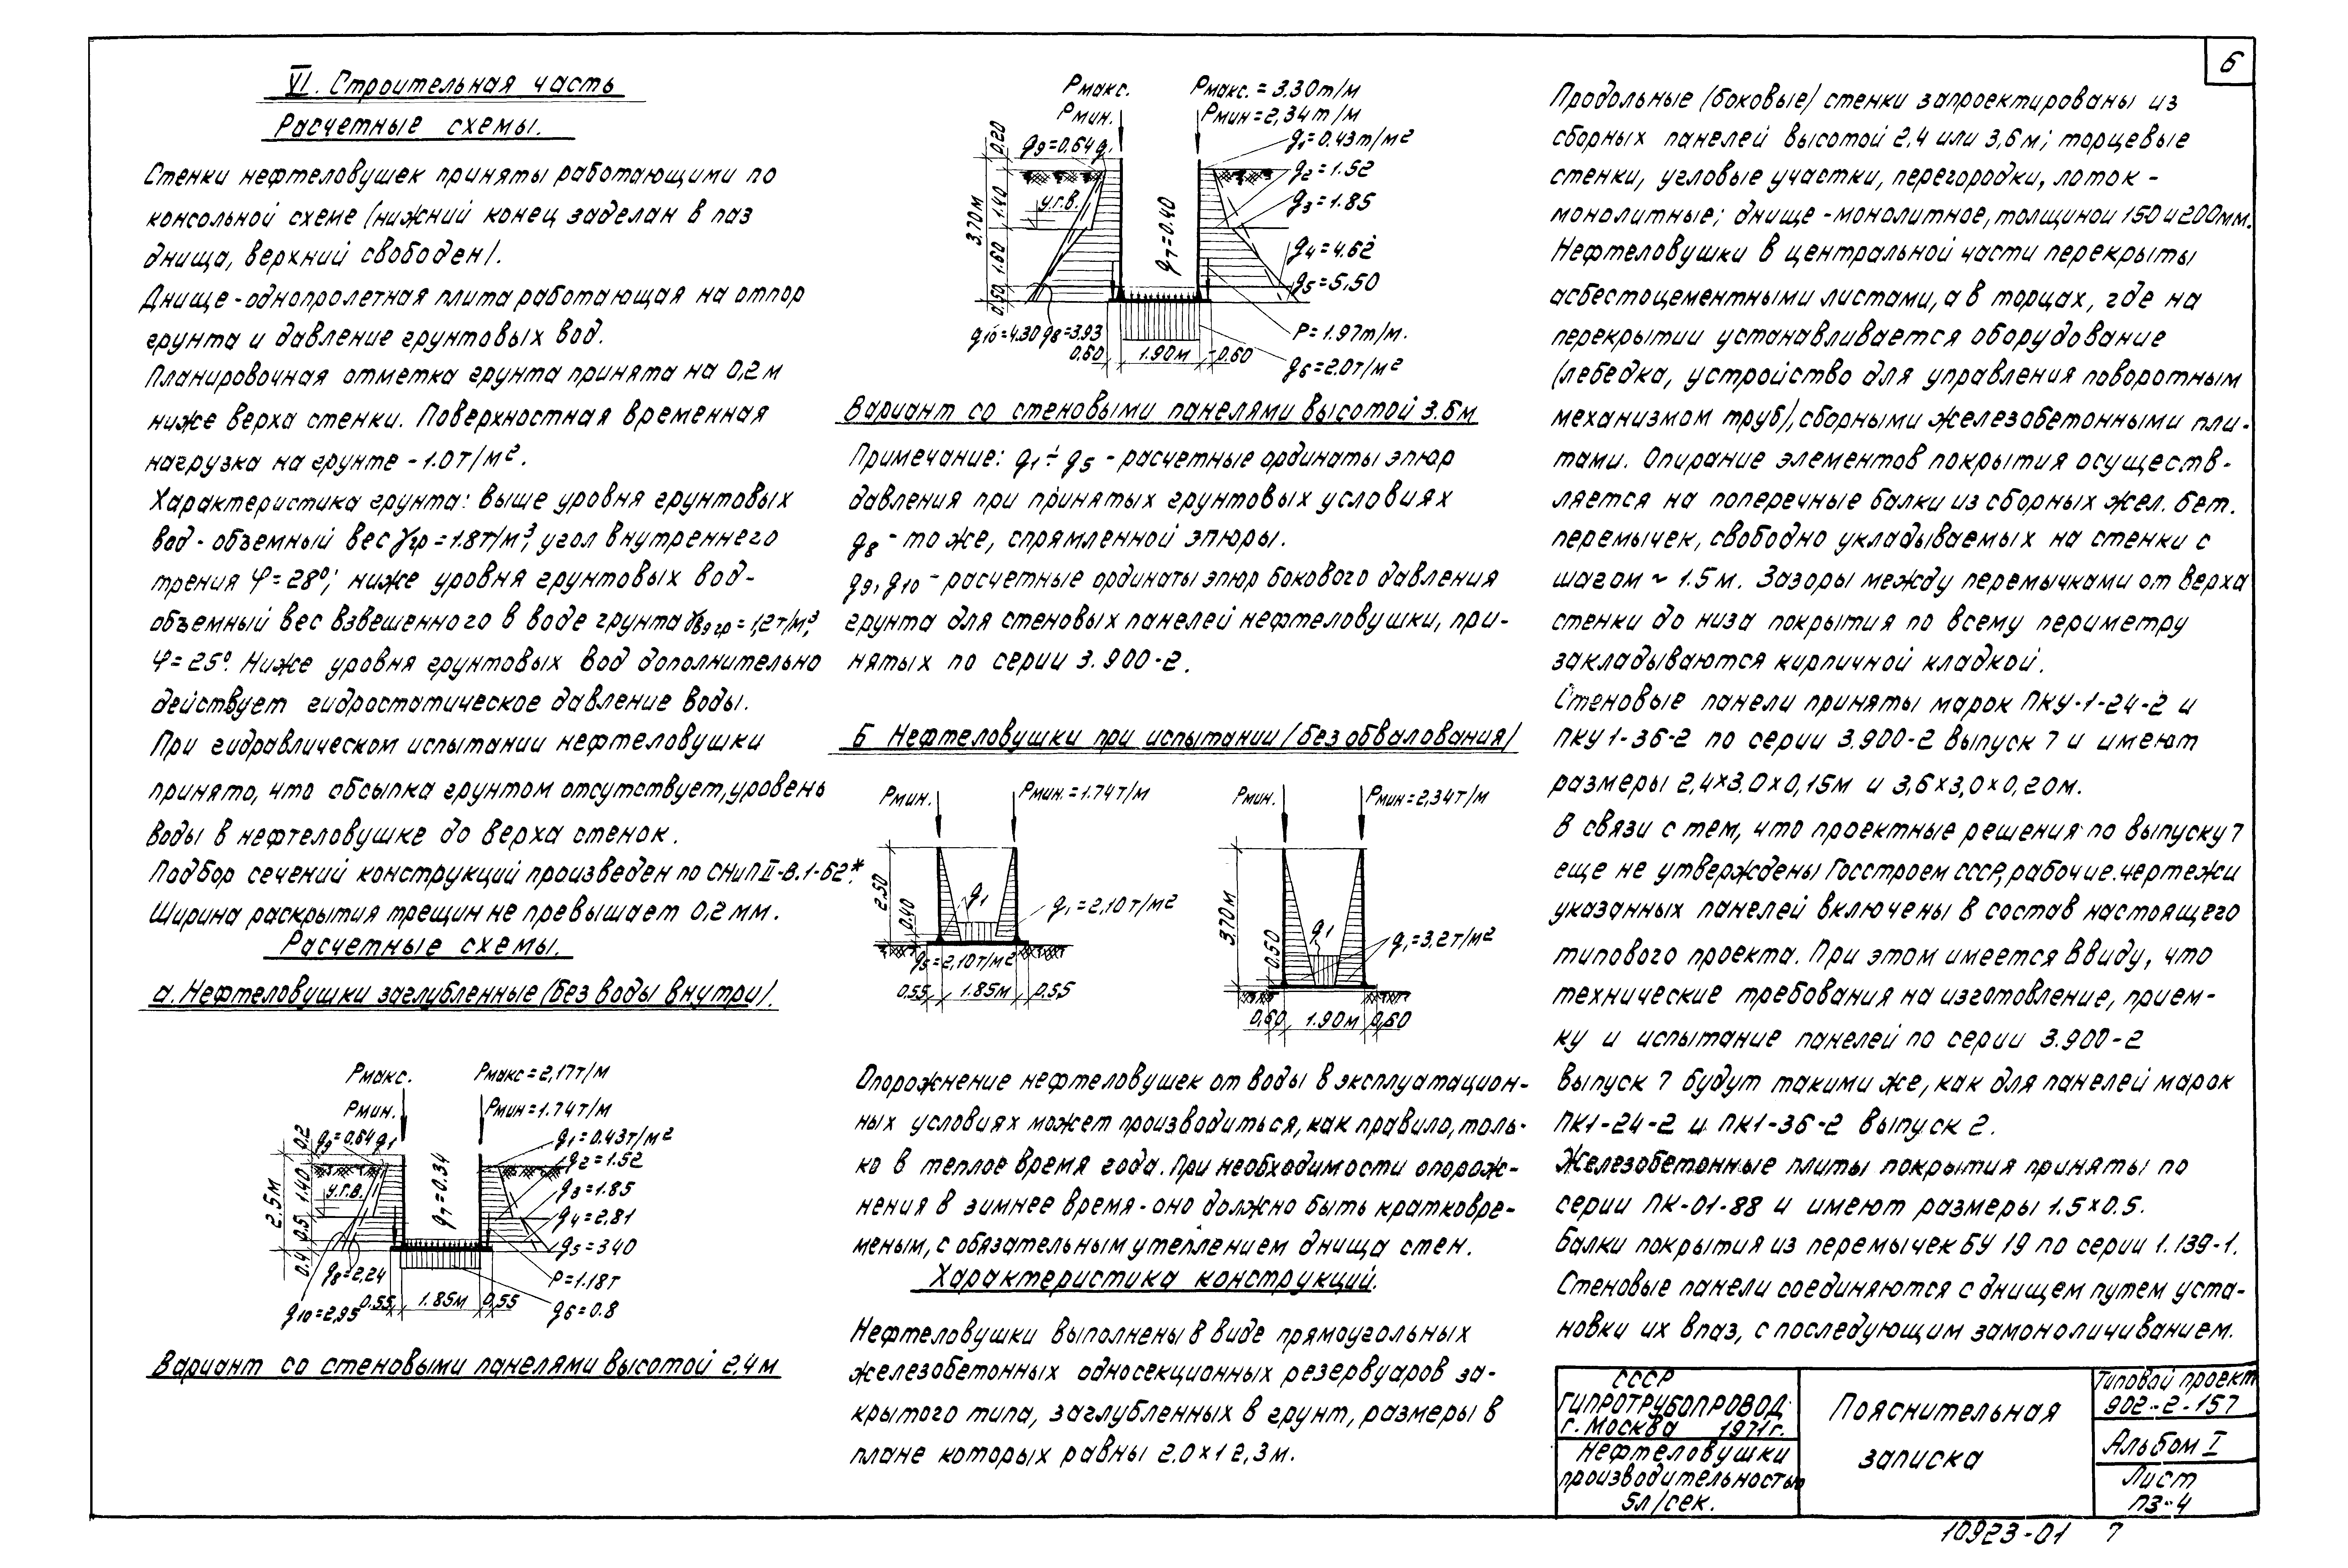 6
VI. Строительная часть
Расчетные схемы.
Стенки нефтеловушек приняты работающими по
консольной схеме (нижний конец заделан в паз
днища, верхний свободен).
Днище-однопролетная плита работающая на отпор
грунта и давление грунтовых вод.
Планировочная отметка грунта принята на 0,2 м
ниже верха стенки. Поверхностная временная
нагрузка на грунте - 1.0 т/м².
Характеристика грунта: выше уровня грунтовых
вод - объемный вес γгр = 1.8т/м³, угол внутреннего
трения φ = 28°; ниже уровня грунтовых вод-
объемный вес взвешенного в воде грунта γвз гр = 1,2т/м³,
φ = 25°. Ниже уровня грунтовых вод дополнительно
действует гидростатическое давление воды.
При гидравлическом испытании нефтеловушки
принято, что обсыпка грунтом отсутствует, уровень
воды в нефтеловушке до верха стенок.
Подбор сечений конструкций произведен по СНиП II-В.1-62*.
Ширина раскрытия трещин не превышает 0,2 мм.
Расчетные схемы.
а. Нефтеловушки заглубленные (без воды внутри).
Рмакс. Рмакс = 2,17т/м
Рмин. Рмин = 1.74т/м
g9 = 0.64 g1 g1 = 0.43т/м²
g2 = 1.52
g3 = 1.85
g4 = 2,81
g5 = 340
P = 1.18т
g6 = 0.8
g7 = 0.34
у.г.в.
2.5м 0.2 1.40 0.5 0.4
g8 = 2,24
g10 = 2,95 0.55 1.85м 0,55
Вариант со стеновыми панелями высотой 2,4 м
Рмакс. Рмакс. = 3.30т/м
Рмин. Рмин = 2,34т/м
g9 = 0.64 g1 g1 = 0.43т/м²
g2 = 1.52
g3 = 1.85
g4 = 4.62
g5 = 5,50
g7 = 0.40
у.г.в.
3.70м 0.20 1.40 1.60 0.50
g10 = 4.30 g8 = 3.93 P = 1.97т/м.
0,60 1.90м 0.60
g6 = 2.0т/м²
Вариант со стеновыми панелями высотой 3.6м
Примечание: g1 ÷ g5 - расчетные ординаты эпюр
давления при принятых грунтовых условиях
g8 - то же, спрямленной эпюры.
g9, g10 - расчетные ординаты эпюр бокового давления
грунта для стеновых панелей нефтеловушки, при-
нятых по серии 3.900-2.
Б Нефтеловушки при испытании (без обвалования)
Рмин. Рмин. = 1.74т/м
2.50 0.40 g1 g1 = 2,10т/м²
g5 = 2,10т/м²
0.55 1.85м 0.55
Рмин. Рмин = 2,34т/м
3,70м 0.50 g1 g1 = 3,2т/м²
0,60 1.90м 0,60
Опорожнение нефтеловушек от воды в эксплуатацион-
ных условиях может производиться, как правило, толь-
ко в теплое время года. При необходимости опорож-
нения в зимнее время - оно должно быть кратковре-
меным, с обязательным утеплением днища стен.
Характеристика конструкций.
Нефтеловушки выполнены в виде прямоугольных
железобетонных односекционных резервуаров за-
крытого типа, заглубленных в грунт, размеры в
плане которых равны 2.0×12,3м.
Продольные (боковые) стенки запроектированы из
сборных панелей высотой 2,4 или 3,6 м; торцевые
стенки, угловые участки, перегородки, лоток -
монолитные; днище - монолитное, толщиной 150 и 200мм.
Нефтеловушки в центральной части перекрыты
асбестоцементными листами, а в торцах, где на
перекрытии устанавливается оборудование
(лебедка, устройство для управления поворотным
механизмом труб), сборными железобетонными пли-
тами. Опирание элементов покрытия осуществ-
ляется на поперечные балки из сборных жел. бет.
перемычек, свободно укладываемых на стенки с
шагом ~ 1.5 м. Зазоры между перемычками от верха
стенки до низа покрытия по всему периметру
закладываются кирпичной кладкой.
Стеновые панели приняты марок ПКУ-1-24-2 и
ПКУ1-36-2 по серии 3.900-2 выпуск 7 и имеют
размеры 2,4×3.0×0,15м и 3,6×3,0×0,20м.
В связи с тем, что проектные решения по выпуску 7
еще не утверждены Госстроем СССР, рабочие чертежи
указанных панелей включены в состав настоящего
типового проекта. При этом имеется ввиду, что
технические требования на изготовление, прием-
ку и испытание панелей по серии 3.900-2
выпуск 7 будут такими же, как для панелей марок
ПК1-24-2 и ПК1-36-2 выпуск 2.
Железобетонные плиты покрытия приняты по
серии ПК-01-88 и имеют размеры 1.5×0.5.
Балки покрытия из перемычек БУ 19 по серии 1.139-1.
Стеновые панели соединяются с днищем путем уста-
новки их в паз, с последующим замоноличиванием.
СССР
ГИПРОТРУБОПРОВОД
г. Москва 1971г.
Нефтеловушки
производительностью
5л/сек.
Пояснительная
записка
Типовой проект
902-2-157
Альбом I
Лист
ПЗ-4
10923-01 7